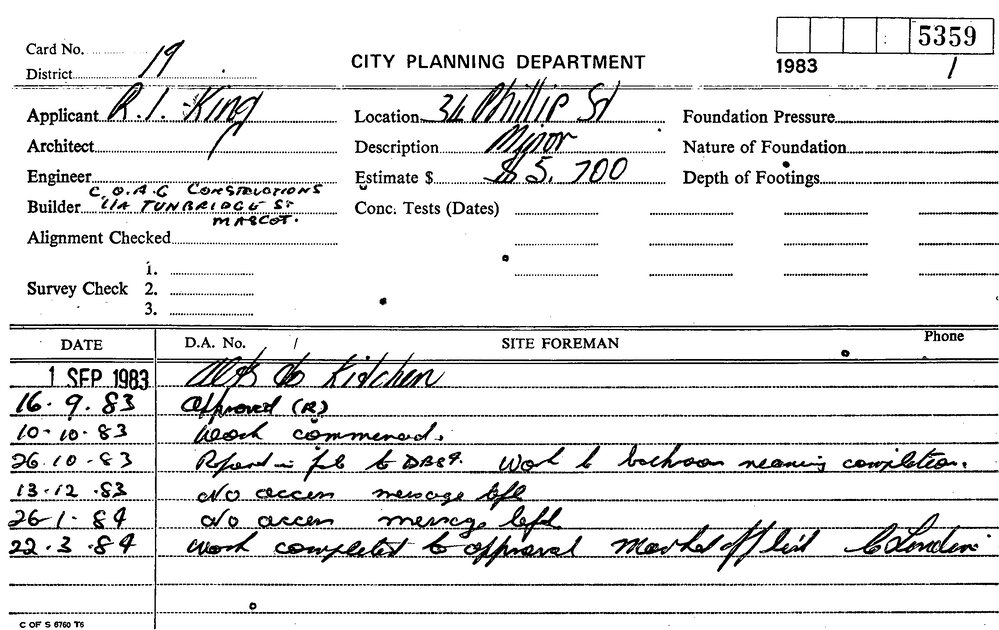 5359
Card No. 19
1983 1
CITY PLANNING DEPARTMENT
District
Applicant R. I. King
Location 34 Phillip St
Foundation Pressure
Architect
Description Minor
Nature of Foundation
Engineer
Estimate $ $5,700
Depth of Footings
C.O.A.G CONSTRUCTIONS
Builder 41A TUNBRIDGE ST
MASCOT.
Conc. Tests (Dates)
Alignment Checked
1.
Survey Check 2.
3.
DATE D.A. No. / SITE FOREMAN Phone
1 SEP 1983 Alts to Kitchen
16.9.83 Approved (R)
10.10.83 Work commenced.
26.10.83 Report in file to DBS4. Work to bathroom nearing completion.
13.12.83 No access message left
26-1-84 No access message left
22.3.84 Work completed to approval Marked off list C London
C OF S 6760 T6